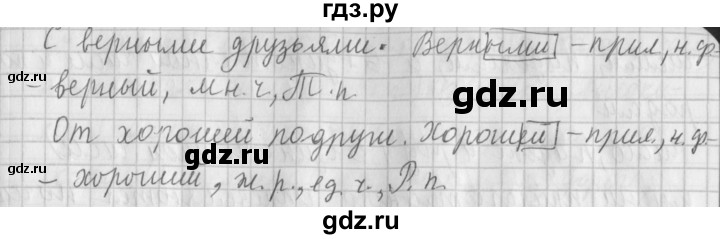 гдз.ру
С верными друзьями. Верными - прил, н.ф
gdz.ru
gdz.ru
- верный, мн.ч, Т.п.
gdz.ru
От хорошей подруж. Хорошей - прил, н.ф-
gdz.ru
gdz.ru
- хороший, ж.р., ед.ч., Р.п.
gdz.ru
gdz.ru